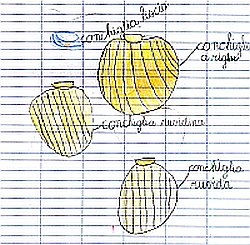 conchiglia liscia
conchiglia
a righe
conchiglia
conchiglia
ruvida